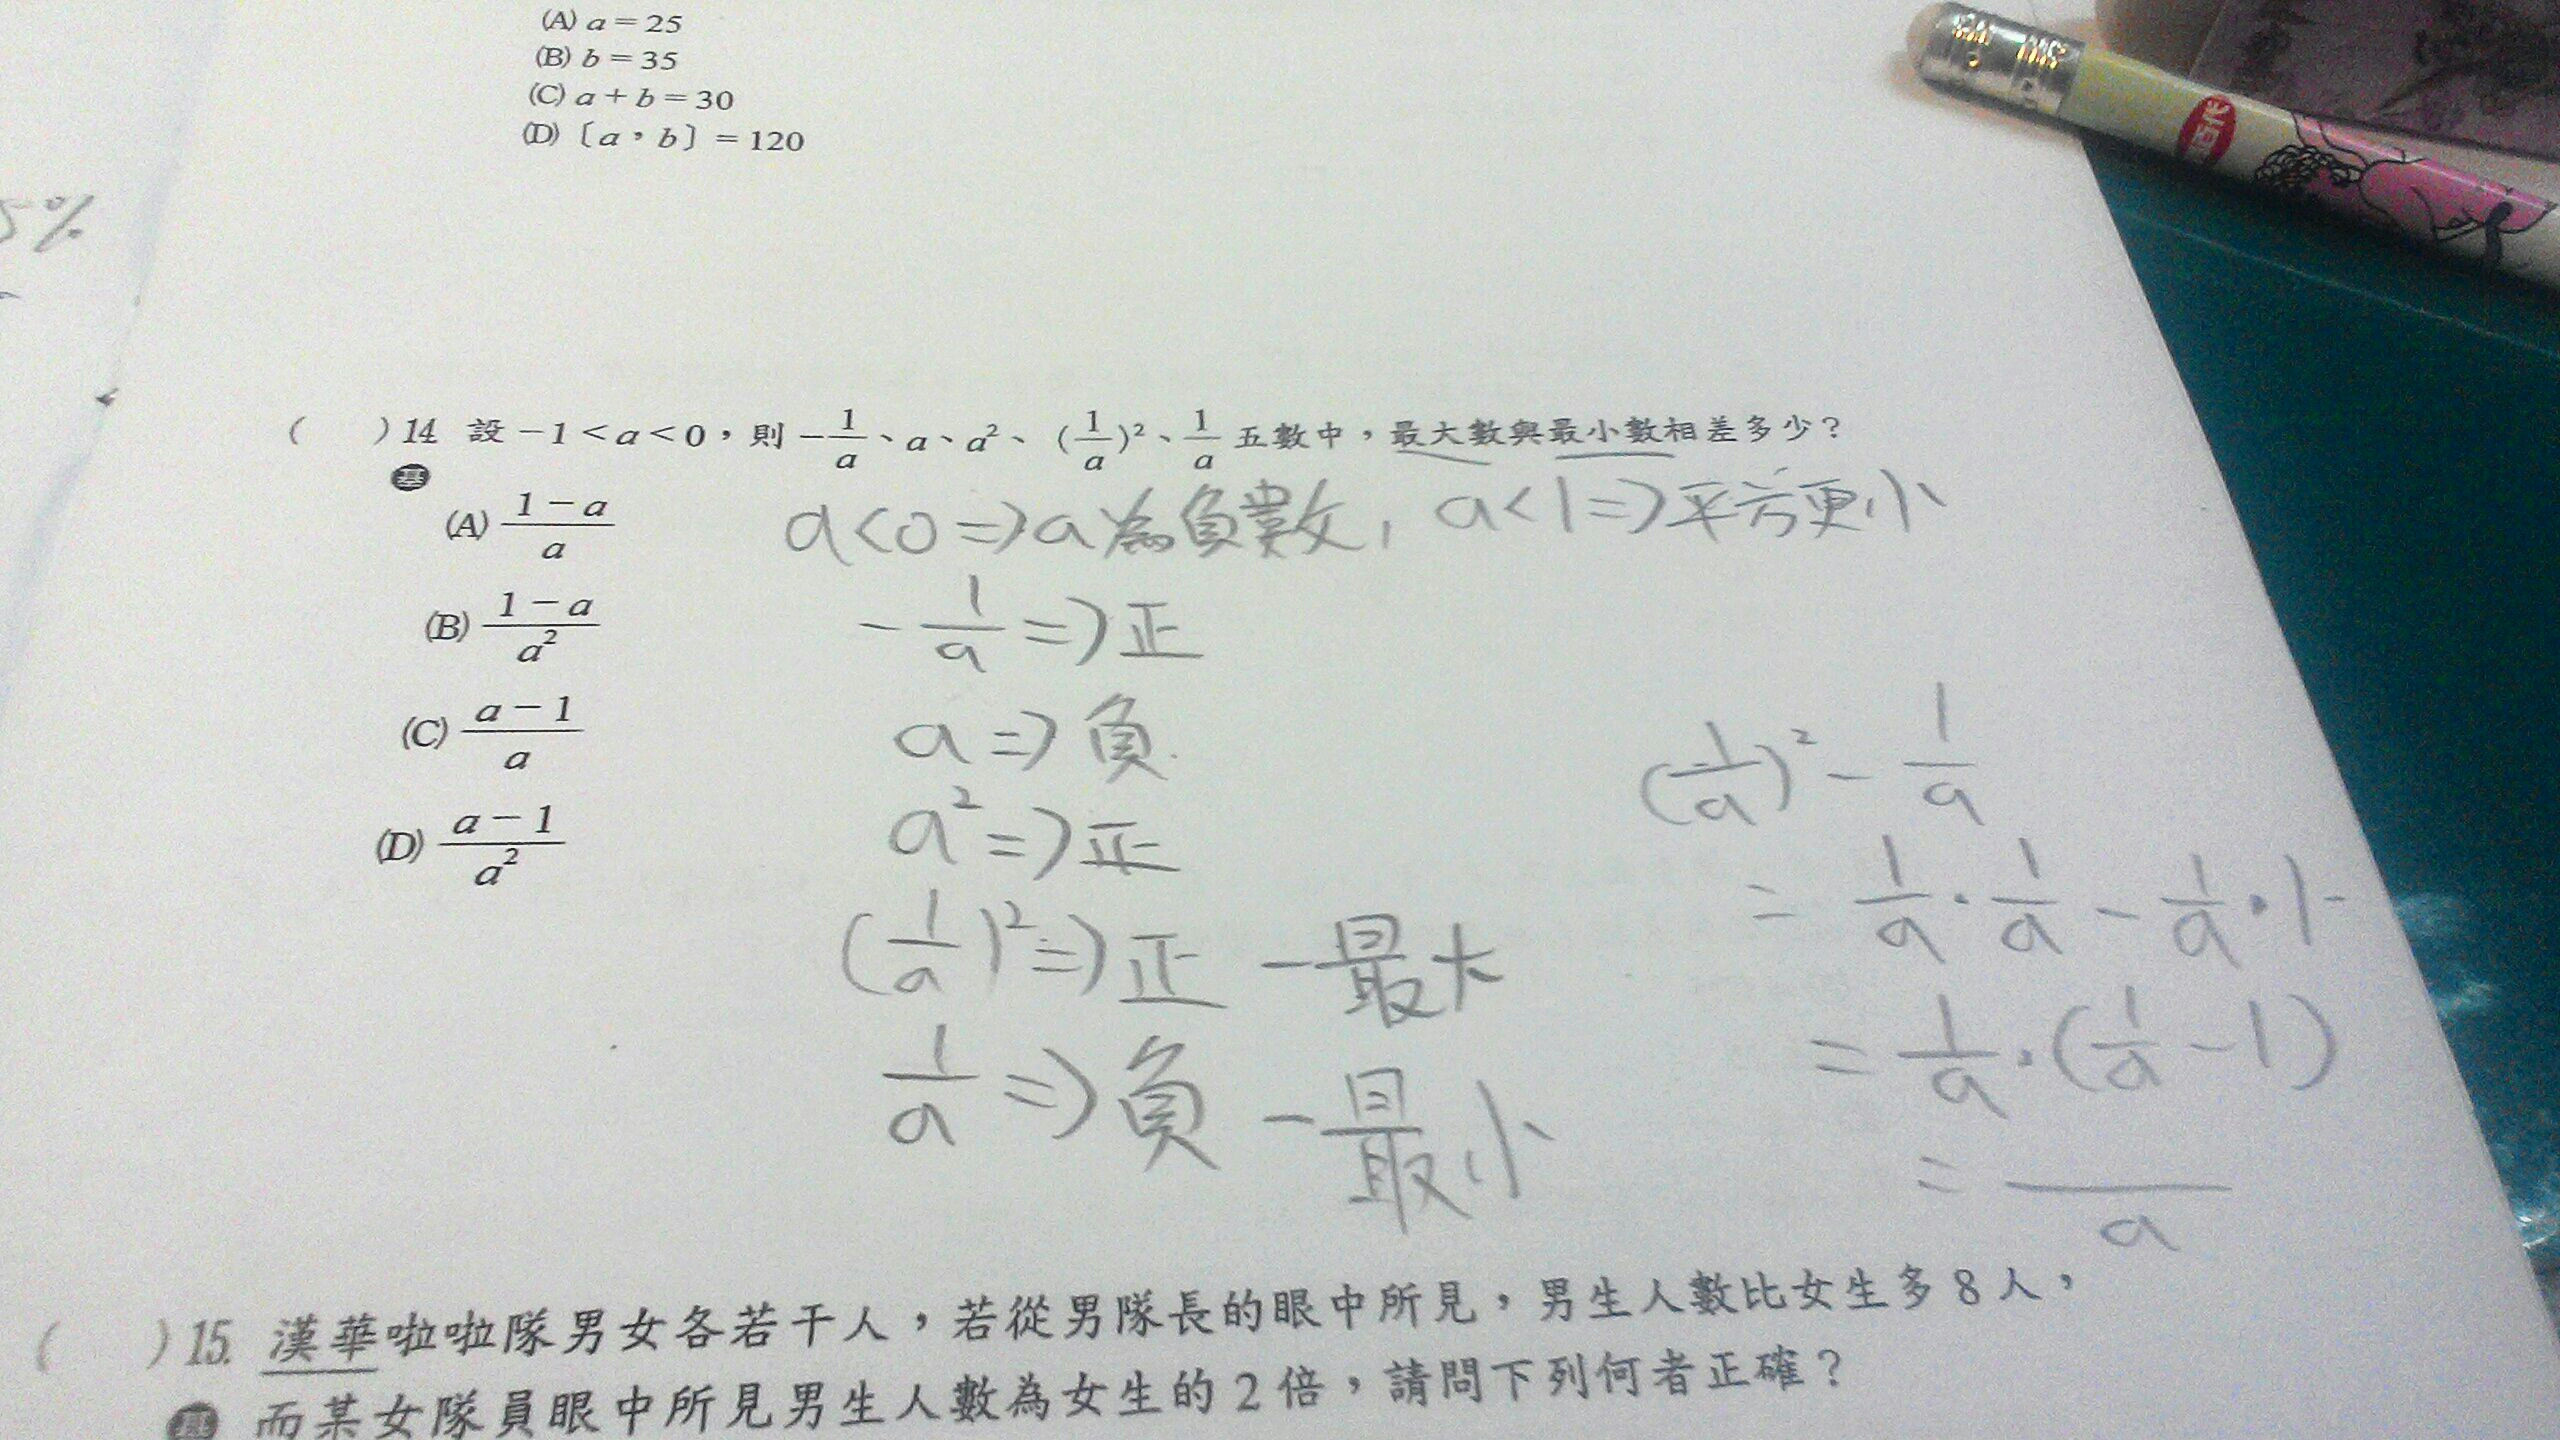 (A) a＝25
(B) b＝35
(C) a＋b＝30
(D)〔a，b〕＝120
5%
(　)14. 設－1＜a＜0，則－1/a、a、a²、(1/a)²、1/a 五數中，最大數與最小數相差多少？
基
(A) (1－a)/a
(B) (1－a)/a²
(C) (a－1)/a
(D) (a－1)/a²
a<0=>a為負數, a<1=>平方更小
-1/a=>正
a=>負
a²=>正
(1/a)²=>正 -最大
1/a=>負 -最小
(1/a)²-1/a
=1/a·1/a-1/a·1
=1/a·(1/a-1)
= /a
(　)15. 漢華啦啦隊男女各若干人，若從男隊長的眼中所見，男生人數比女生多8人，
而某女隊員眼中所見男生人數為女生的2倍，請問下列何者正確？